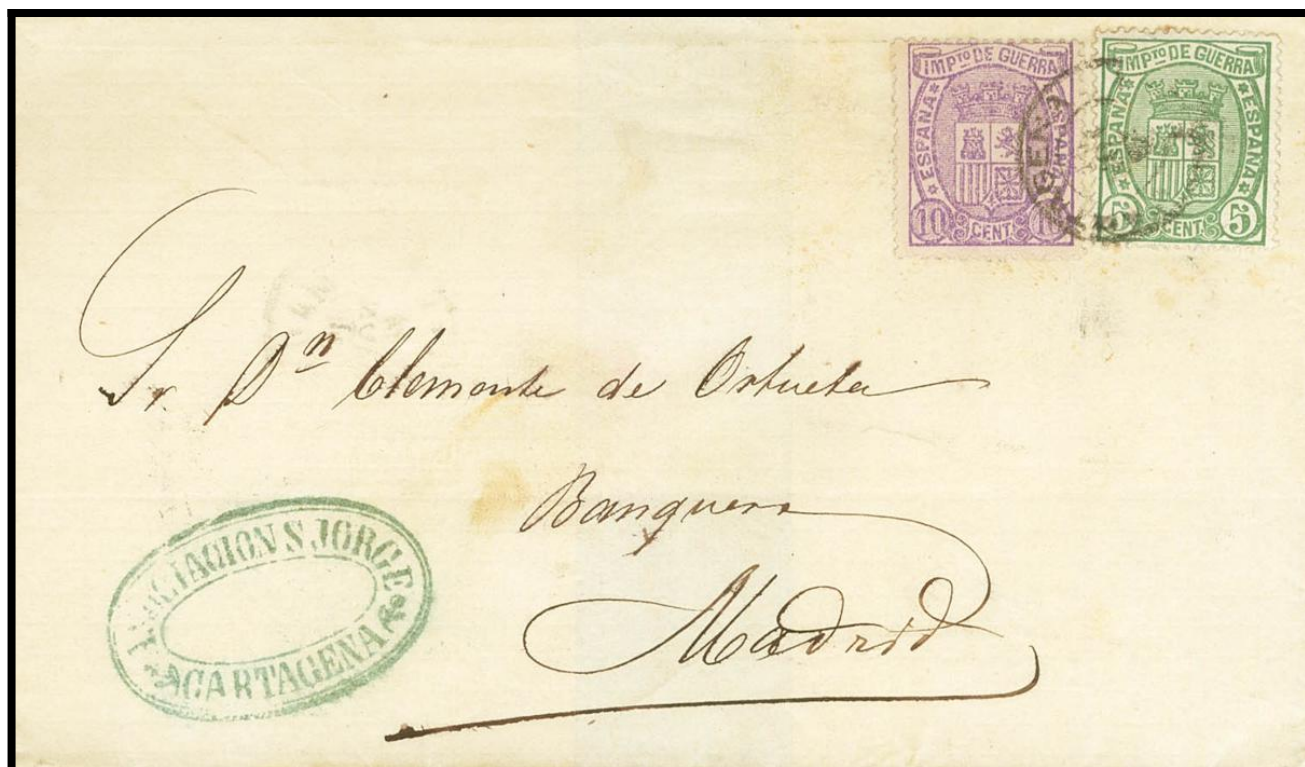 IMPTO DE GUERRA
ESPAÑA
ESPAÑA
10 CENT. 10
IMPTO DE GUERRA
ESPAÑA
ESPAÑA
5 CENT. 5
Sr Dn Clemente de Ortueta
Banquero
Madrid
S JORGE
CARTAGENA